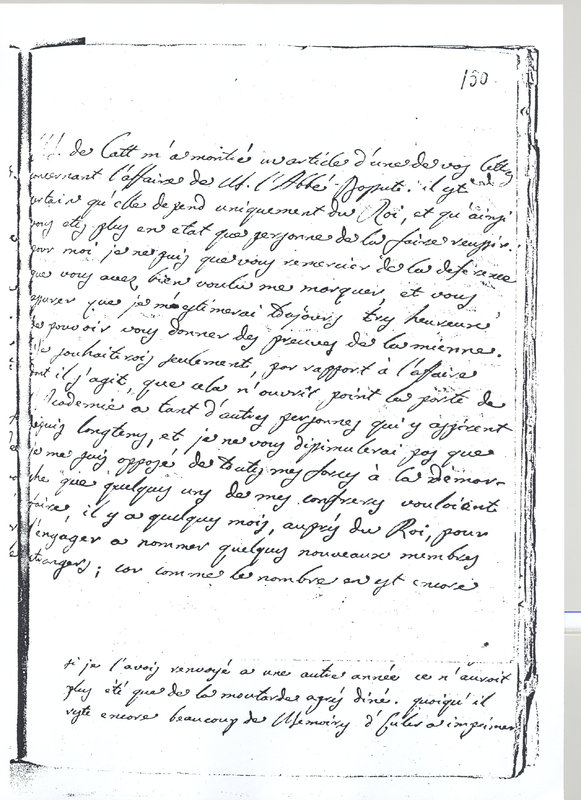 150
M. de Catt m'a montré un article d'une de vos lettres
concernant l'affaire de M. l'Abbé il est
certain qu'elle depend uniquement du Roi, et qu'ainsi
vous etes plus en etat que personne de la faire reussir.
pour moi je ne puis que vous remercier de la deference
que vous avez bien voulu me marquer, et vous
assurer que je m'estimerai toujours très heureux
de pouvoir vous donner des preuves de la mienne.
Je souhaiterois seulement, par rapport à l'affaire
dont il s'agit, que cela n'ouvrit point la porte de
l'Academie a tant d'autres personnes qui y aspirent
depuis longtems, et je ne vous dissimulerai pas que
je me suis opposé de toutes mes forces à la démar-
che que quelques uns de mes confreres vouloient
faire, il y a quelques mois, aupres du Roi, pour
l'engager a nommer quelques nouveaux membres
etrangers; car comme le nombre en est encore
si je l'avois renvoyé a une autre année ce n'auroit
plus été que de la moutarde après diné. quoiqu'il
reste encore beaucoup de Memoires d'Euler a imprimer